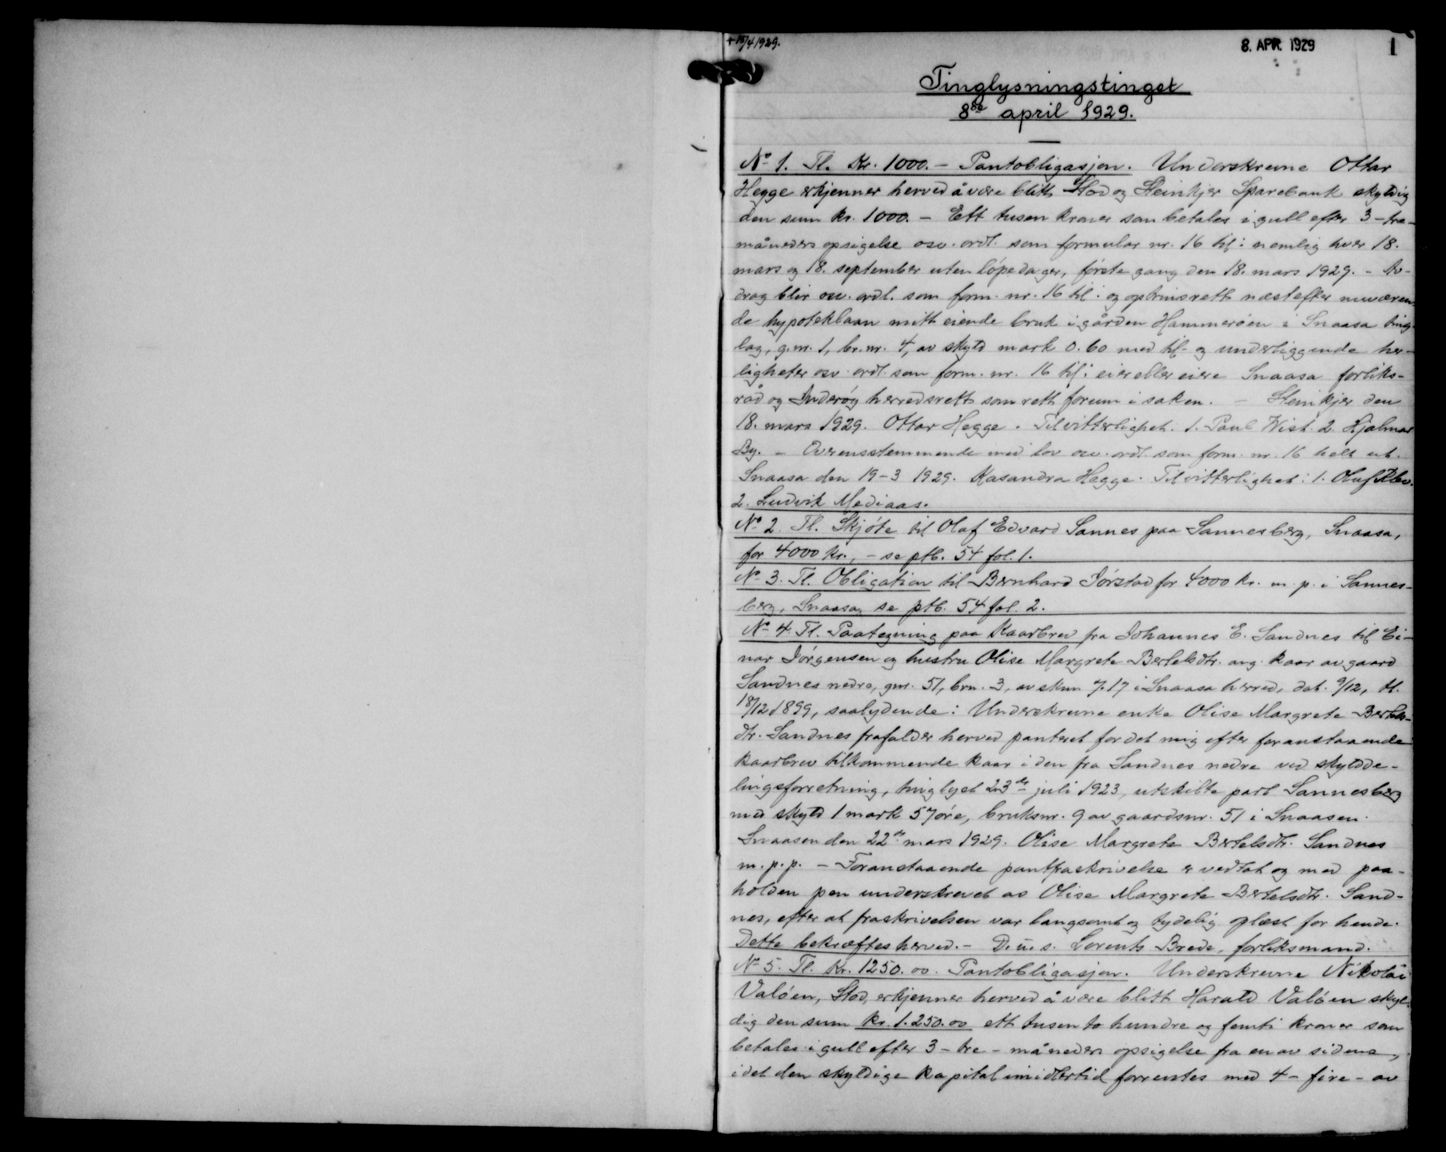 + 15/4 1929.
8. APR. 1929
1
Tinglysningstinget
8de april 1929.
No 1. Tl. Kr. 1000.- Pantobligasjon. Underskrevne Ottar
Hegge erkjenner herved å være blitt Stod og Steinkjer Sparebank skyldig
den sum kr. 1000.- Ett tusen kroner som betales i gull efter 3-tre-
måneders opsigelse osv. ordl. som formular nr. 16 til: nemlig hver 18.
mars og 18. september uten löpedager, förste gang den 18. mars 1929. - Av-
drag blir osv. ordl. som form. nr. 16 til: og optrinsrett næstefter nuværen-
de hypoteklaan mitt eiende bruk i gården Hammeröen i Snaasa ting-
lag, g.nr. 1, br.nr. 4, av skyld mark 0.60 med til- og underliggende her-
ligheter osv. ordl. som form. nr. 16 til: eier eller eiere Snaasa forliks-
råd og Inderöy herredsrett som rett forum i saken. - Steinkjer den
18. mars 1929. Ottar Hegge. Til vitterlighet: 1. Paul Wist 2. Hjalmar
By. - Overensstemmende med lov osv. ordl. som form. nr. 16 helt ut.
Snaasa den 19-3 1929. Kasandra Hegge. Til vitterlighet: 1. Oluf
2. Ludvik Mediaas.
No 2. Tl. Skjöte til Olaf Edvard Sannes paa Sannesberg, Snaasa,
for 4000 kr., - se ptb. 54 fol. 1.
No 3. Tl. Obligation til Bernhard Jörstad for 4000 kr. m. p. i Sannes-
berg, Snaasa, se ptb. 54 fol. 2.
No 4 Tl. Paategning paa Kaarbrev fra Johannes E. Sandnes til Ei-
nar Jörgensen og hustru Olise Margrete Bertelsdtr. ang. kaar av gaard
Sandnes nedre, gnr. 51, brn. 3, av skyld 7.17 i Snaasa herred, dat. 9/12, tl.
18/12 1899, saalydende: Underskrevne enke Olise Margrete Bertels-
dtr. Sandnes frafalder herved panteret for det mig efter foranstaaende
kaarbrev tilkommende kaar i den fra Sandnes nedre ved skylddde-
lingsforretning, tinglyst 23de juli 1923, utskilte part Sannesberg
med skyld 1 mark 57 öre, bruksnr. 9 av gaardsnr. 51 i Snaasen.
Snaasen den 22de mars 1929. Olise Margrete Bertelsdtr. Sandnes
m. p. p. - Foranstaaende pantfraskrivelse er vedtat og med paa-
holden pen underskrevet av Olise Margrete Bertelsdtr. Sand-
nes, efter at fraskrivelsen var langsomt og tydelig oplest for hende.
Dette bekræftes herved. - D. u. s. Lorents Brede, forliksmand.
No 5. Tl. Kr. 1250.00. Pantobligasjon. Underskrevne Nikolai
Valöen, Stod, erkjenner herved å være blitt Harald Valöen skyl-
dig den sum kr. 1.250.00 ett tusen to hundre og femti kroner som
betales i gull efter 3-tre-måneders opsigelse fra en av sidene,
idet den skyldige kapital imidlertid forrentes med 4-fire-av